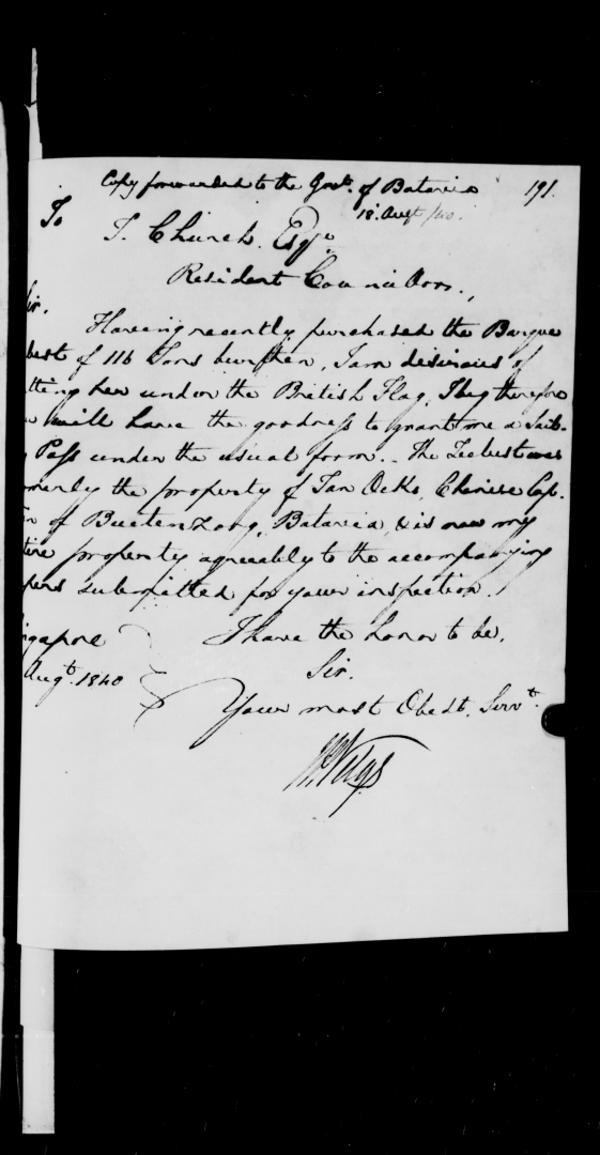 Copy forwarded to the Govt. of Batavia 191.
18 Augt /40.
To
T. Church. Esqr.
Resident Councillor.,
Sir.
Having recently purchased the Barque
best of 116 Tons burthen, I am desirous of
tting her under the British Flag, I beg therefore
will have the goodness to grant me a Sail-
Pass under the usual form. The Zeebest was
merly the property of Tan Oeko, Chinese Cap-
of Buetenzorg, Batavia, & is now my
tire property agreeably to the accompanying
pers submitted for your inspection.
I have the honor to be,
ngapore
Sir.
Augt. 1840
Your most Obedt. Servt.